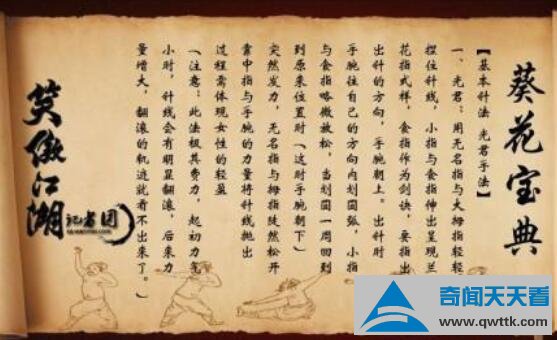 葵花宝典
【基本针法 光君手法】
一、光君:用无名指与大拇指轻轻
捏住针线,小指与食指伸出呈现兰
花指式样,食指作为剑诀,要指出
出针的方向,手腕朝上。出针时
手腕往自己的方向内划圆弧,小指
与食指略微放松,当划圆一周回到
到原来位置时(这时手腕朝下)
突然发力,无名指与拇指陡然松开
靠中指与手腕的力量将针线抛出
过程需体现女性的轻盈
(注意:此法极其费力,起初力气
小时,针线会有明显翻滚,后来力
量增大,翻滚的轨迹就看不出来了。)
笑傲江湖
记者团
奇闻天天看
www.qwttk.com